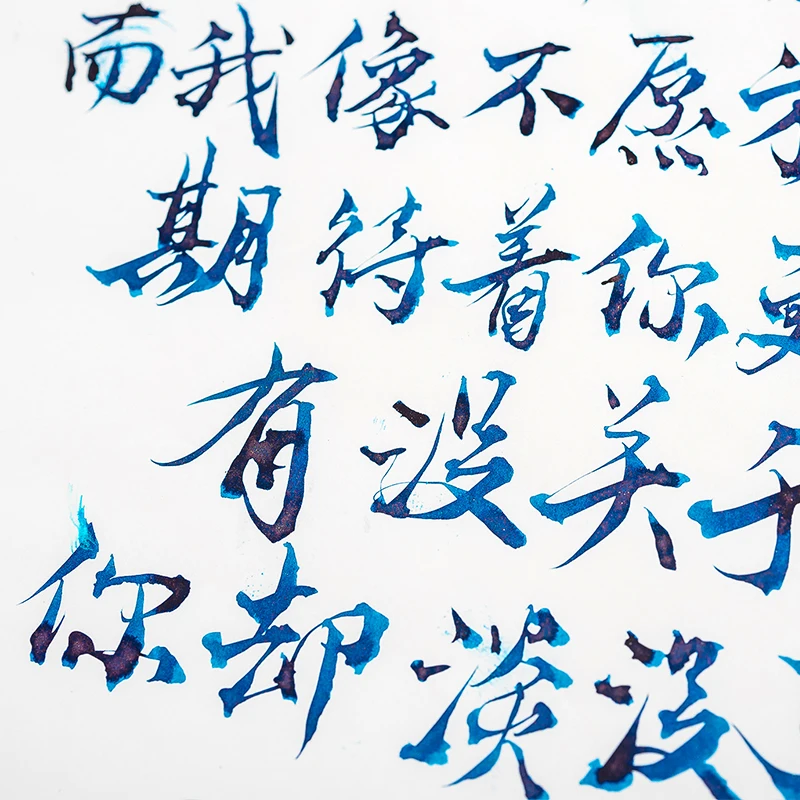 而我像不愿
期待着你
有没关于
你却淡没